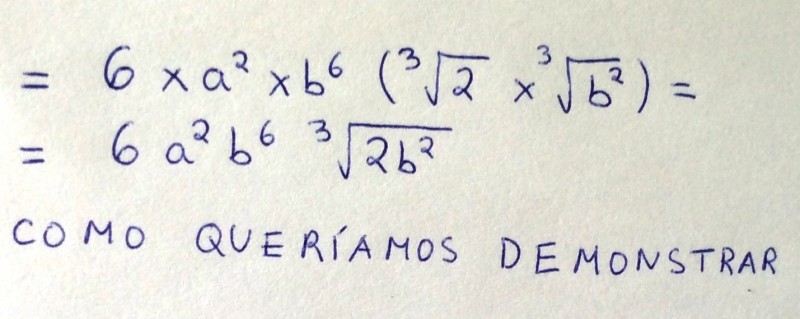 = 6 × a² × b⁶ (³√2 × ³√b²) =
= 6 a² b⁶ ³√2b²
COMO QUERÍAMOS DEMONSTRAR